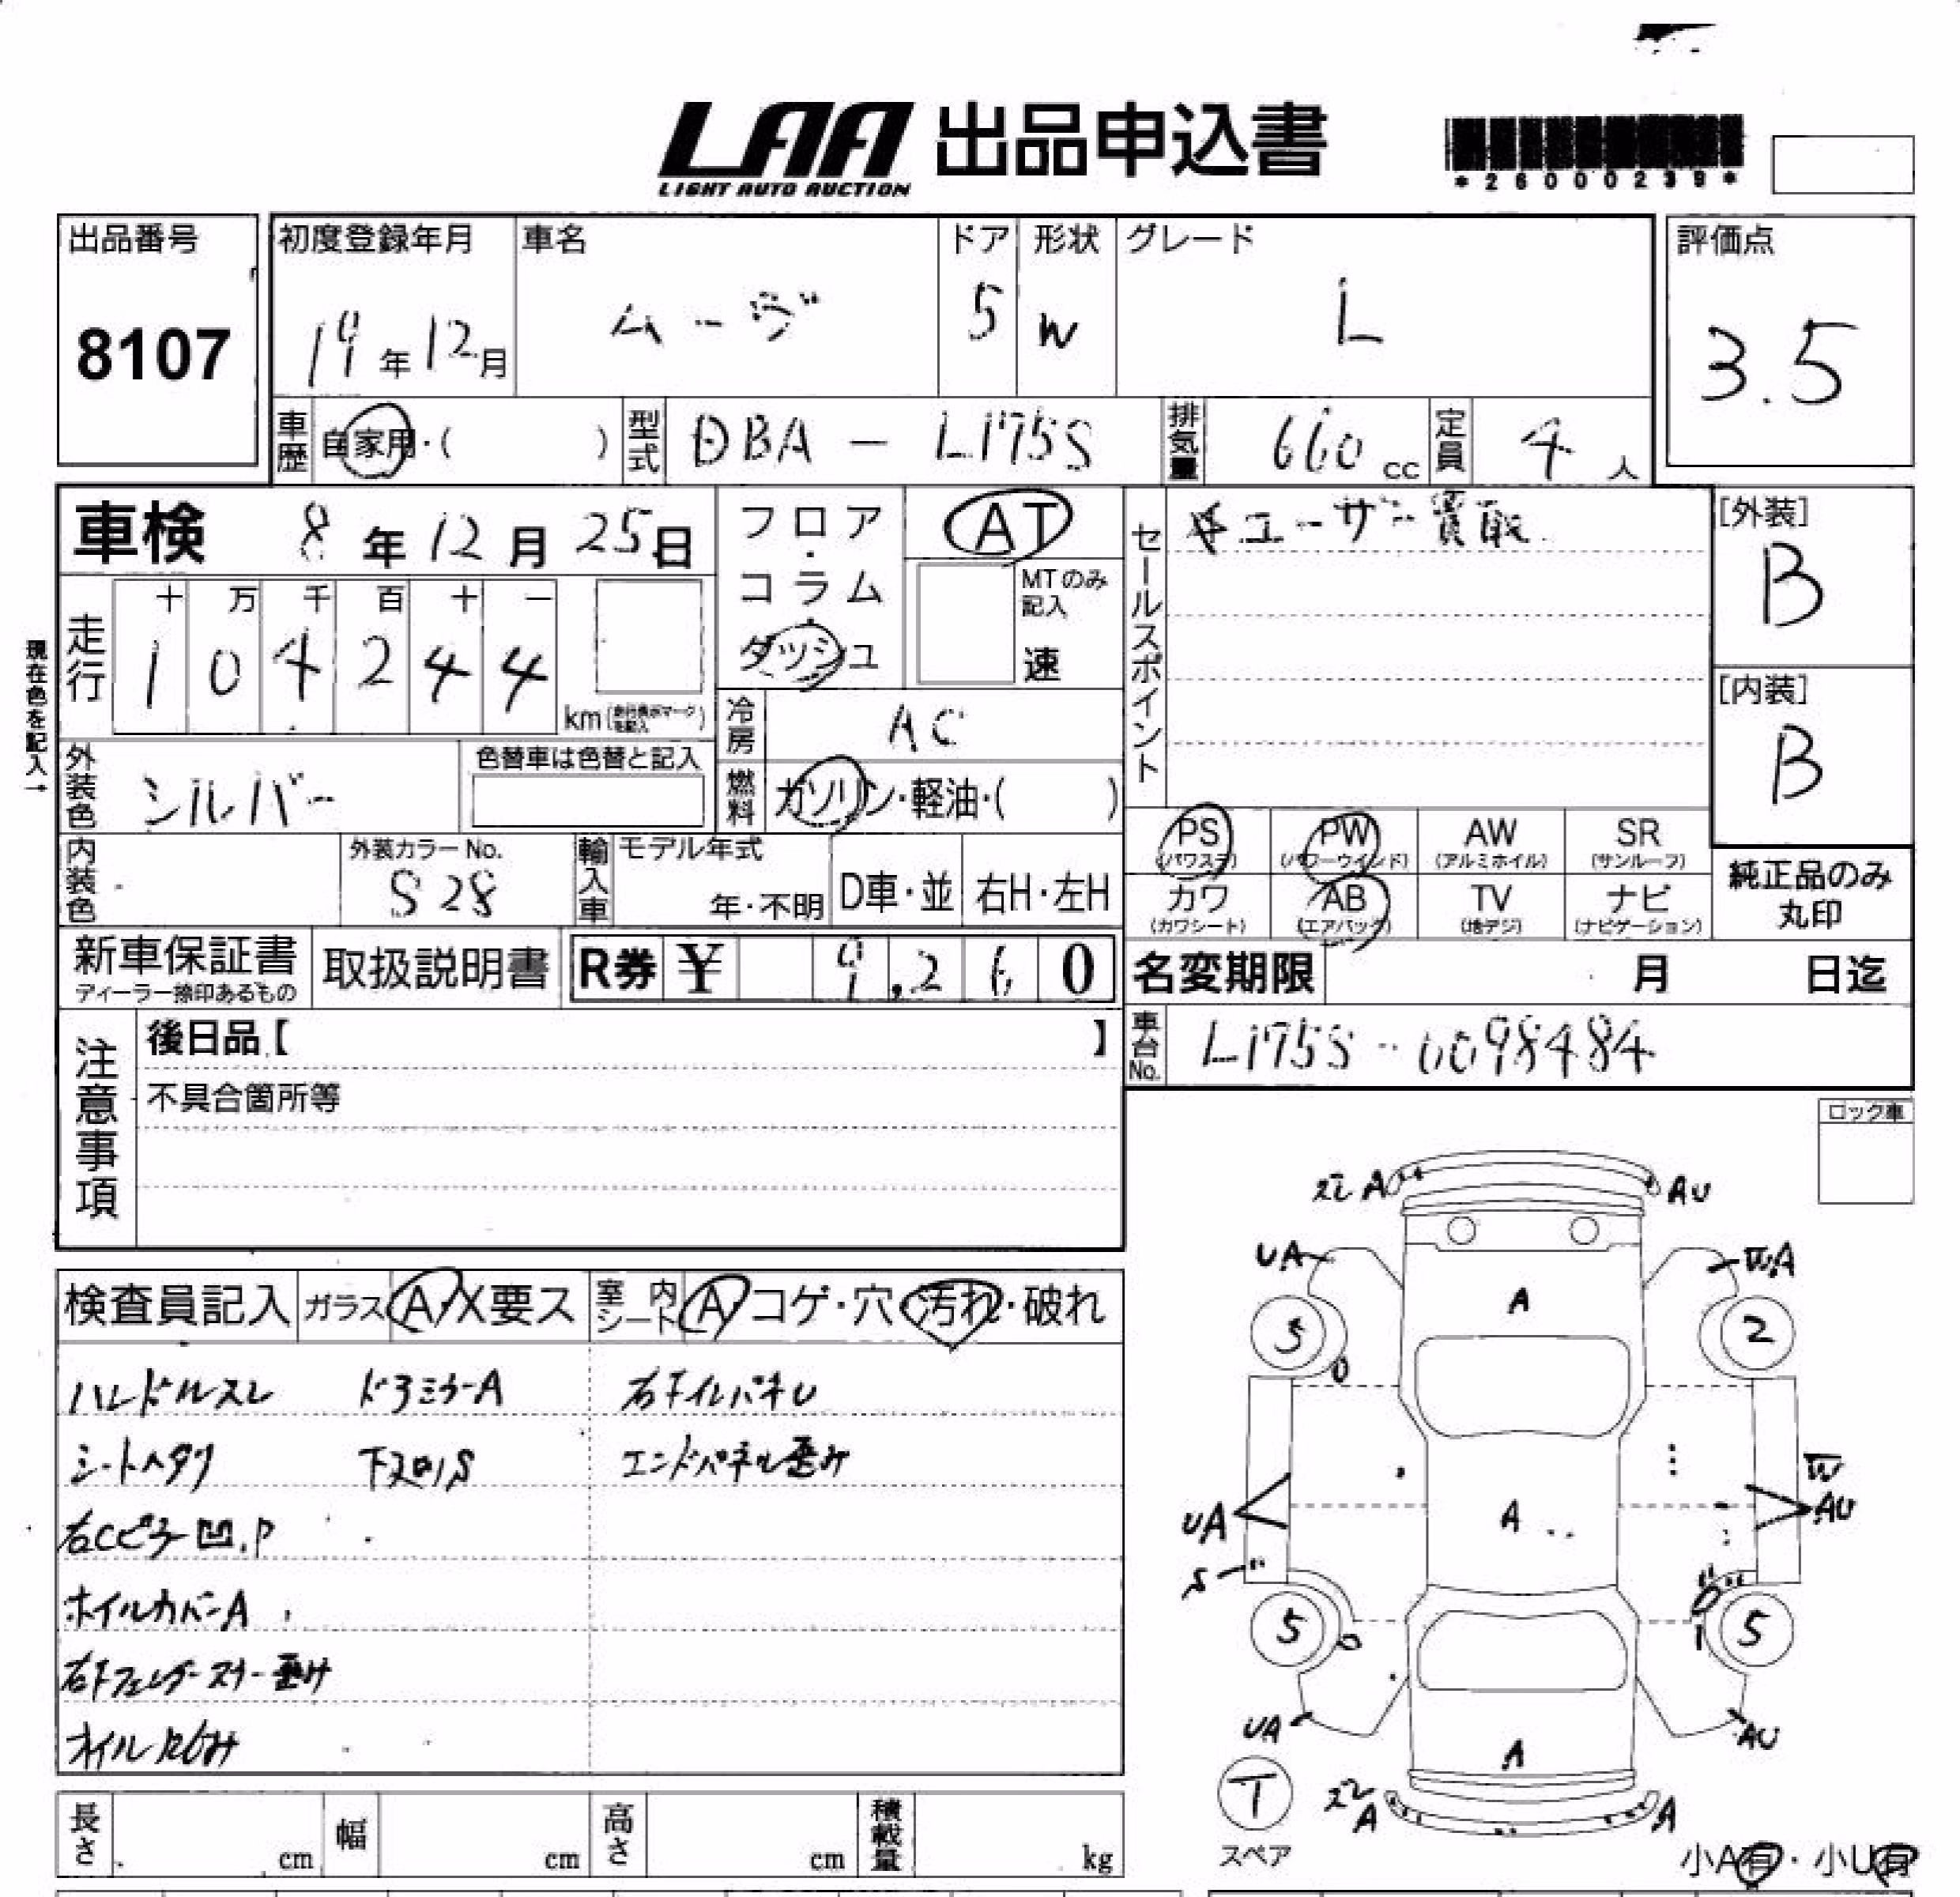 LAA 出品申込書
LIGHT AUTO AUCTION
*26000239*
出品番号 初度登録年月 車名 ドア 形状 グレード 評価点
8107 19年12月 ムーヴ 5 W L 3.5
車歴 自家用・( ) 型式 DBA - L175S 排気量 660 cc 定員 4 人
車検 8年12月25日 フロア・コラム・ダッシュ AT MTのみ記入 速
セールスポイント ユーザー買取
[外装] B
[内装] B
現在色を記入→
走行 十 万 千 百 十 一
1 0 4 2 4 4 km
冷房 AC
外装色 シルバー 色替車は色替と記入
燃料 ガソリン・軽油・( )
PS (パワステ) PW (パワーウインド) AW (アルミホイル) SR (サンルーフ)
カワ (カワシート) AB (エアバック) TV (地デジ) ナビ (ナビゲーション)
純正品のみ丸印
内装色 外装カラーNo. S28 輸入車 モデル年式 年・不明 D車・並 右H・左H
新車保証書 ディーラー捺印あるもの 取扱説明書 R券 ¥ 9,260
名変期限 月 日迄
車台No. L175S-0098484
注意事項 後日品【 】
不具合箇所等
ロック車
検査員記入 ガラス A・X要ス 室内シート A・コゲ・穴・汚れ・破れ
ハンドルスレ ドアミラーA 右テイルパネU
シートヘタリ 下スロS エンドパネル歪み
右Cピラ凹.P
ホイルカバーA
右Fフェンダーステー歪み
オイルにじみ
スレA AU
UA WA
A
3 2
UA A W AU
S
5 5
UA AU
A
T スレA A
スペア
小A有・小U有
長さ cm 幅 cm 高さ cm 積載量 kg